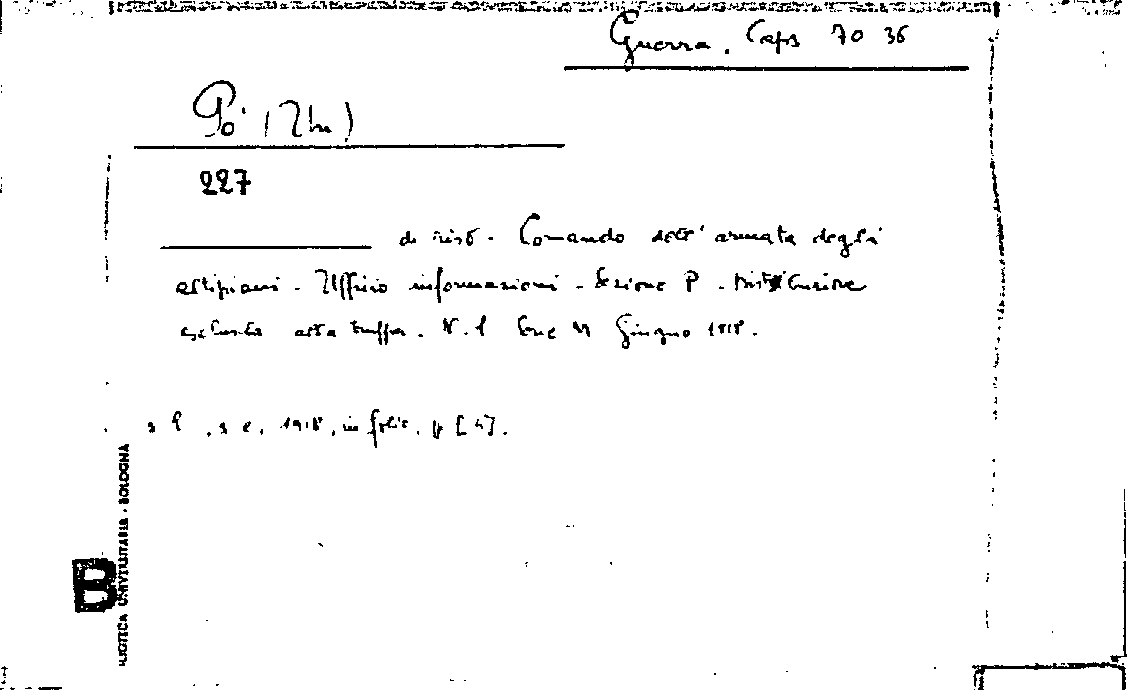 Guerra. Caps 70 36
Pò (Il)
227
di Comando dell' armata degli
altipiani - Ufficio informazioni - Sezione P - Distribuzione
esclusa alla truppa. N. 1 Giugno 1918.
s l , s e, 1918, in folio, p [4].
BIBLIOTECA UNIVERSITARIA - BOLOGNA
B